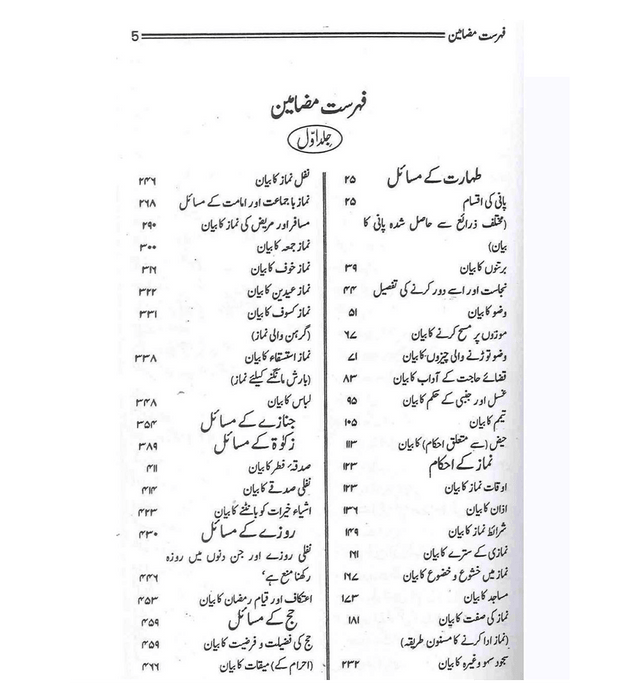 فہرست مضامین 5
فہرست مضامین
جلد اوّل
طہارت کے مسائل ۲۵
پانی کی اقسام ۲۵
(مختلف ذرائع سے حاصل شدہ پانی کا
بیان)
برتنوں کا بیان ۳۹
نجاست اور اسے دور کرنے کی تفصیل ۴۴
وضو کا بیان ۵۱
موزوں پر مسح کرنے کا بیان ۶۷
وضو توڑنے والی چیزوں کا بیان ۷۱
قضائے حاجت کے آداب کا بیان ۸۳
غسل اور جنبی کے حکم کا بیان ۹۵
تیمم کا بیان ۱۰۵
حیض (سے متعلق احکام) کا بیان ۱۱۳
نماز کے احکام ۱۲۳
اوقات نماز کا بیان ۱۲۳
اذان کا بیان ۱۳۶
شرائط نماز کا بیان ۱۴۹
نمازی کے سترے کا بیان ۱۶۱
نماز میں خشوع و خضوع کا بیان ۱۶۷
مساجد کا بیان ۱۷۳
نماز کی صفت کا بیان ۱۸۱
(نماز ادا کرنے کا مسنون طریقہ)
سجود سہو وغیرہ کا بیان ۲۳۲
نفل نماز کا بیان ۲۴۶
نماز با جماعت اور امامت کے مسائل ۲۶۸
مسافر اور مریض کی نماز کا بیان ۲۹۰
نماز جمعہ کا بیان ۳۰۰
نماز خوف کا بیان ۳۱۶
نماز عیدین کا بیان ۳۲۲
نماز کسوف کا بیان ۳۳۱
(گرہن والی نماز)
نماز استسقاء کا بیان ۳۳۸
(بارش مانگنے کیلئے نماز)
لباس کا بیان ۳۴۸
جنازے کے مسائل ۳۵۴
زکوٰۃ کے مسائل ۳۸۹
صدقۂ فطر کا بیان ۴۱۱
نفلی صدقے کا بیان ۴۱۴
اشیاء خیرات کو بانٹنے کا بیان ۴۲۳
روزے کے مسائل ۴۳۰
نفلی روزے اور جن دنوں میں روزہ
رکھنا منع ہے‘ ۴۴۶
اعتکاف اور قیام رمضان کا بیان ۴۵۳
حج کے مسائل ۴۵۹
حج کی فضیلت و فرضیت کا بیان ۴۵۹
(احرام کے) میقات کا بیان ۴۶۶